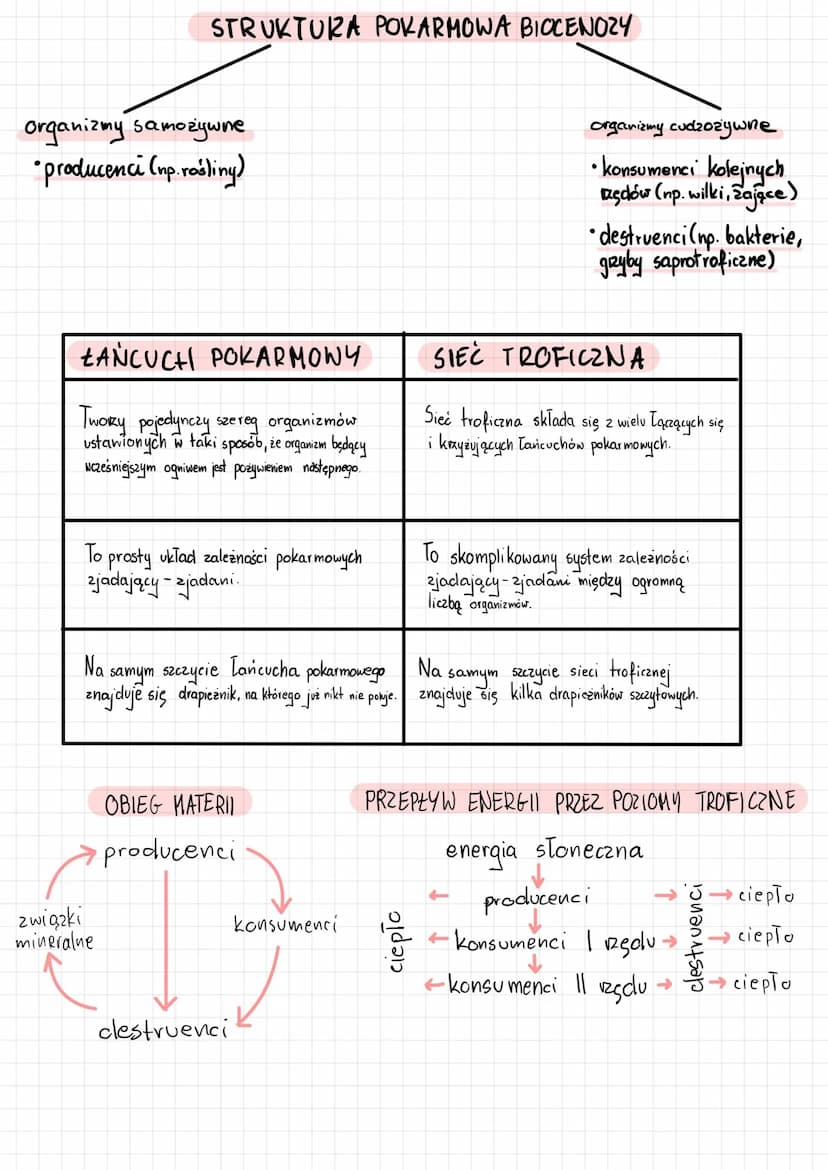 STRUKTURA POKARMOWA BIOCENOZY
organizmy samożywne
•producenci (np. rośliny)
organizmy cudzożywne
•konsumenci kolejnych
rzędów (np. wilki, zające)
•destruenci (np. bakterie,
grzyby saprotroficzne)
ŁAŃCUCH POKARMOWY
Tworzy pojedynczy szereg organizmów
ustawionych w taki sposób, że organizm będący
wcześniejszym ogniwem jest pożywieniem następnego.
To prosty układ zależności pokarmowych
zjadający - zjadani.
Na samym szczycie łańcucha pokarmowego
znajduje się drapieżnik, na którego już nikt nie poluje.
SIEĆ TROFICZNA
Sieć troficzna składa się z wielu łączących się
i krzyżujących łańcuchów pokarmowych.
To skomplikowany system zależności
zjadający - zjadani między ogromną
liczbą organizmów.
Na samym szczycie sieci troficznej
znajduje się kilka drapieżników szczytowych.
OBIEG MATERII
producenci
związki
mineralne
konsumenci
destruenci
PRZEPŁYW ENERGII PRZEZ POZIOMY TROFICZNE
energia słoneczna
ciepło
producenci
konsumenci I rzędu
konsumenci II rzędu
destruenci
ciepło
ciepło
ciepło